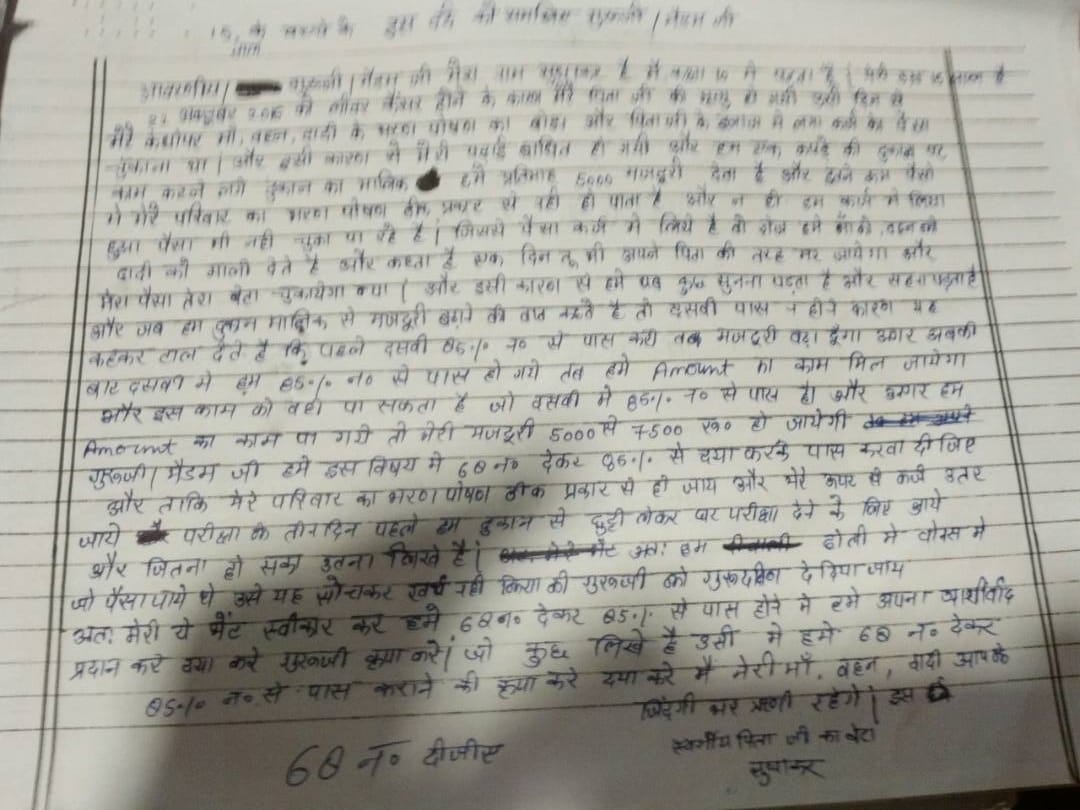 15 साल के बच्चे के इस दर्द को समझिए गुरूजी / मैडम जी
आदरणीय / गुरूजी / मैडम जी मेरा नाम सुधाकर है मैं कक्षा 10 में पढ़ता है
21 अक्टूबर 2016 को लीवर कैंसर होने के कारण मेरे पिता जी की मृत्यु हो गयी उसी दिन से
मेरे कंधोपर माँ, बहन, दादी के भरण पोषण का बोझ और पिता जी के इलाज में लगा कर्ज का पैसा
चुकाना था | और इसी कारण से मेरी पढाई बाधित हो गयी और हम एक कपड़े की दुकान पर
काम करने लगे दुकान का मालिक हमें प्रतिमाह 5000 मजदूरी देता है और इतने कम पैसो
में मेरे परिवार का भरण पोषण ठीक प्रकार से नही हो पाता है और न ही हम कर्ज में लिया
हुआ पैसा भी नही चुका पा रहे है | जिससे पैसा कर्ज में लिये है वो रोज हमें माँ को, बहन को
दादी को गाली देते है और कहता है एक दिन तू भी अपने पिता की तरह मर जायेगा और
मेरा पैसा तेरा बेटा चुकायेगा क्या | और इसी कारण से हमें सब कुछ सुनना पड़ता है और सहना पड़ता है
और जब हम दुकान मालिक से मजदूरी बढ़ाने की बात कहते है तो दसवी पास न होने कारण यह
कहकर टाल देते है कि पहले दसवी 85% न० से पास करो तब मजदूरी बढ़ा दूँगा अगर अबकी
बार दसवी में हम 85% न० से पास हो गये तब हमें Amount का काम मिल जायेगा
और इस काम को वही पा सकता है जो दसवी में 85% न० से पास हो और अगर हम
Amount का काम पा गये तो मेरी मजदूरी 5000 से 7500 रु० हो जायेगी
गुरूजी / मैडम जी हमें इस विषय में 68 न० देकर 85% से दया करके पास करवा दीजिए
और ताकि मेरे परिवार का भरण पोषण ठीक प्रकार से हो जाय और मेरे ऊपर से कर्ज उतर
जाये परीक्षा के तीन दिन पहले हम दुकान से छुट्टी लेकर घर परीक्षा देने के लिए आये
और जितना हो सका उतना लिखे है | अतः हम होली में बोनस में
जो पैसा पाये थे उसे यह सोचकर खर्च नही किया की गुरूजी को गुरूदक्षिणा दे दिया जाय
अतः मेरी ये भेंट स्वीकार कर हमें 68 न० देकर 85% से पास होने में हमें अपना आशीर्वाद
प्रदान करे दया करे गुरूजी कृपा करे | जो कुछ लिखे है उसी में हमें 68 न० देकर
85% न० से पास कराने की कृपा करे दया करे मैं मेरी माँ, बहन, दादी आपके
जिंदगी भर ऋणी रहेगे | इस
स्वर्गीय पिता जी का बेटा
सुधाकर
68 न० दीजीए